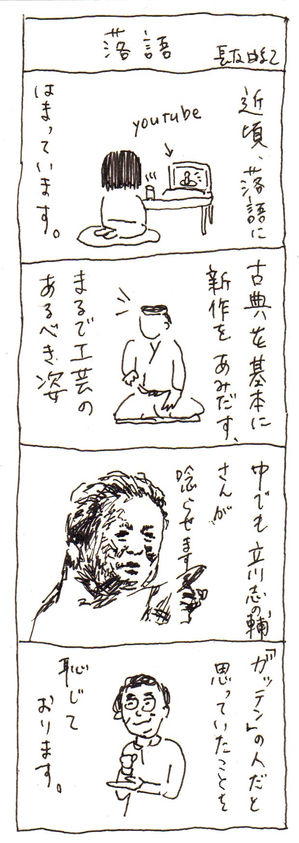 落語
近頃、落語に
はまっています。
youtube
古典を基本に
新作をあみだす、
まるで工芸の
あるべき姿
中でも立川志の輔
さんが
唸らせます
「ガッテン」の人だと
思っていたことを
恥じて
おります。